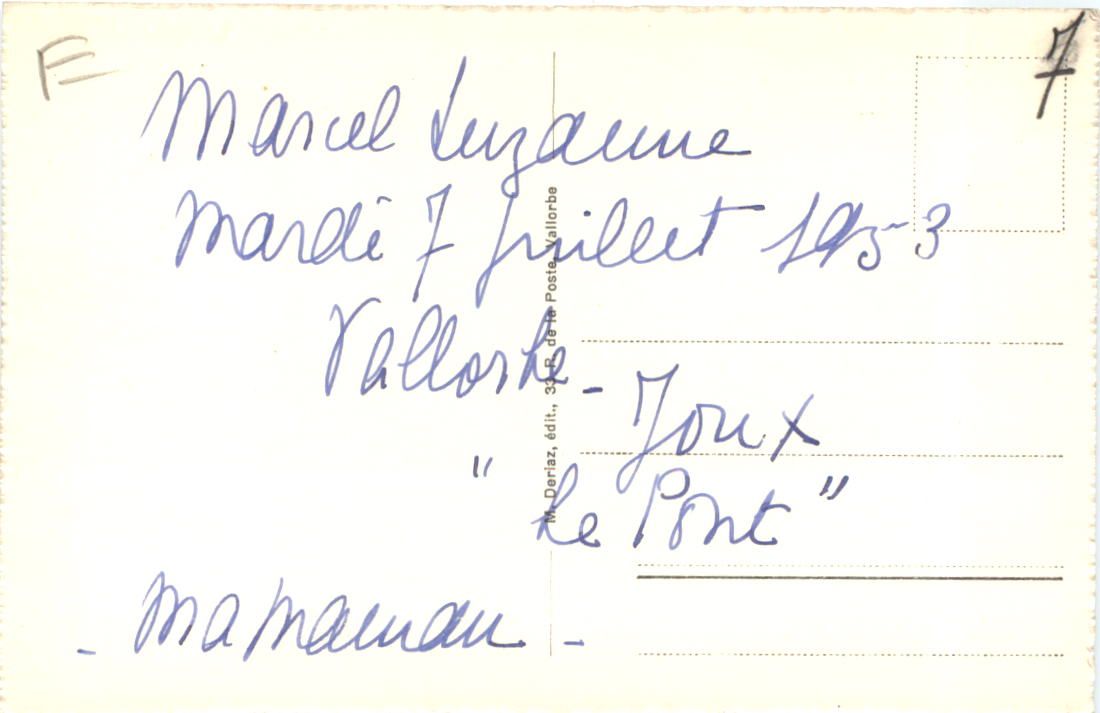 F
7
Marcel Suzanne
Mardi 7 Juillet 1953
Vallorbe -
Joux
" Le Pont "
- Ma Maman -
M. Deriaz, édit., 33, R. de la Poste, Vallorbe